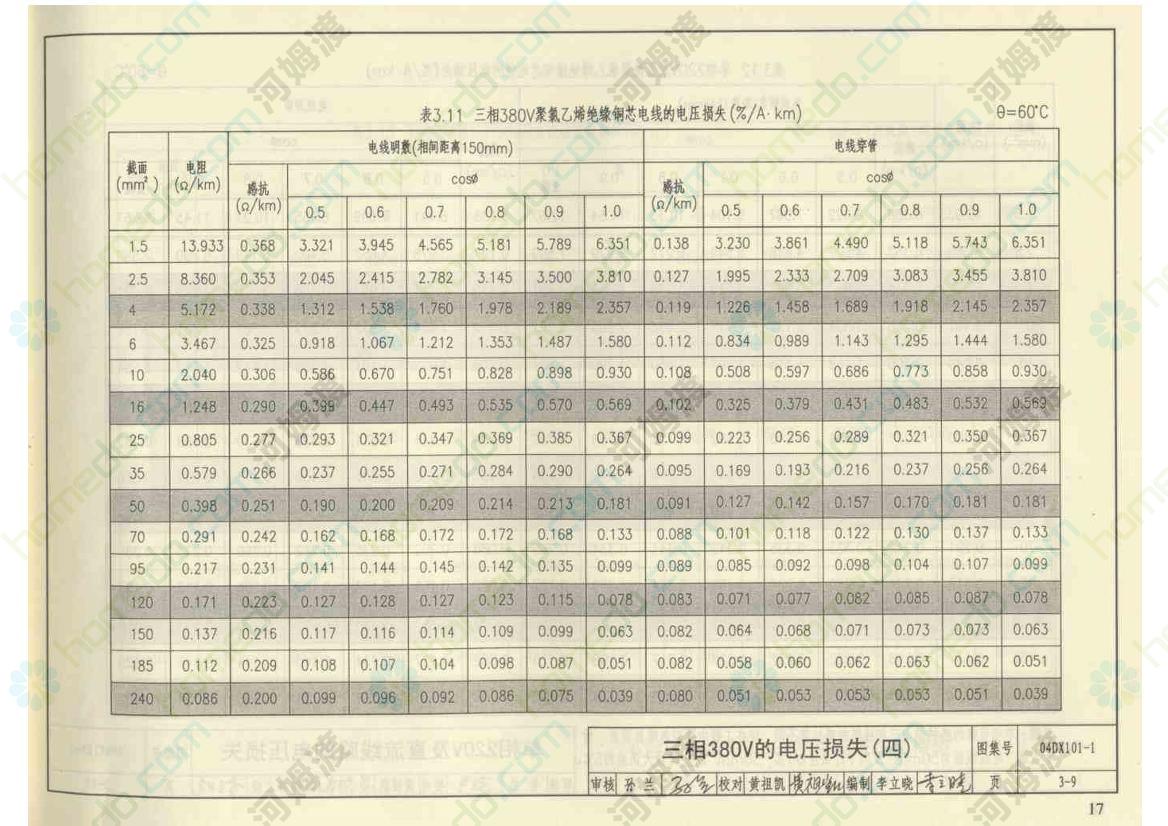 表3.11 三相380V聚氯乙烯绝缘铜芯电线的电压损失(%/A·km) θ=60℃
截面(mm²) 电阻(Ω/km) 电线明敷(相间距离150mm) 电线穿管
感抗(Ω/km) cosø 感抗(Ω/km) cosø
0.5 0.6 0.7 0.8 0.9 1.0 0.5 0.6 0.7 0.8 0.9 1.0
1.5 13.933 0.368 3.321 3.945 4.565 5.181 5.789 6.351 0.138 3.230 3.861 4.490 5.118 5.743 6.351
2.5 8.360 0.353 2.045 2.415 2.782 3.145 3.500 3.810 0.127 1.995 2.333 2.709 3.083 3.455 3.810
4 5.172 0.338 1.312 1.538 1.760 1.978 2.189 2.357 0.119 1.226 1.458 1.689 1.918 2.145 2.357
6 3.467 0.325 0.918 1.067 1.212 1.353 1.487 1.580 0.112 0.834 0.989 1.143 1.295 1.444 1.580
10 2.040 0.306 0.586 0.670 0.751 0.828 0.898 0.930 0.108 0.508 0.597 0.686 0.773 0.858 0.930
16 1.248 0.290 0.399 0.447 0.493 0.535 0.570 0.569 0.102 0.325 0.379 0.431 0.483 0.532 0.569
25 0.805 0.277 0.293 0.321 0.347 0.369 0.385 0.367 0.099 0.223 0.256 0.289 0.321 0.350 0.367
35 0.579 0.266 0.237 0.255 0.271 0.284 0.290 0.264 0.095 0.169 0.193 0.216 0.237 0.256 0.264
50 0.398 0.251 0.190 0.200 0.209 0.214 0.213 0.181 0.091 0.127 0.142 0.157 0.170 0.181 0.181
70 0.291 0.242 0.162 0.168 0.172 0.172 0.168 0.133 0.088 0.101 0.118 0.122 0.130 0.137 0.133
95 0.217 0.231 0.141 0.144 0.145 0.142 0.135 0.099 0.089 0.085 0.092 0.098 0.104 0.107 0.099
120 0.171 0.223 0.127 0.128 0.127 0.123 0.115 0.078 0.083 0.071 0.077 0.082 0.085 0.087 0.078
150 0.137 0.216 0.117 0.116 0.114 0.109 0.099 0.063 0.082 0.064 0.068 0.071 0.073 0.073 0.063
185 0.112 0.209 0.108 0.107 0.104 0.098 0.087 0.051 0.082 0.058 0.060 0.062 0.063 0.062 0.051
240 0.086 0.200 0.099 0.096 0.092 0.086 0.075 0.039 0.080 0.051 0.053 0.053 0.053 0.051 0.039
三相380V的电压损失(四) 图集号 04DX101-1
审核 孙兰 校对 黄祖凯 编制 李立晓 李立晓 页 3-9
17
河姆渡
homedo.com